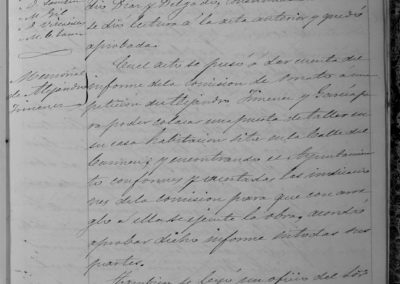 M. Gil
se dió lectura á la acta anterior y quedó
aprobada.
Memorial
de Alejandro
Jimenez
En el acto se pasó á dar cuenta del
informe de la comision de Ornato á una
peticion de Alejandro Jimenez y Garcia pa
ra poder colocar una puerta de taller en
su casa habitacion sita en la Calle del
Carmen; y encontrando el Ayuntamien
to conformes y acertadas las indicacio
nes de la comision para que con arre
glo á ella se ejecute la obra, acordó
aprobar dicho informe en todas sus
partes.
Tambien se leyó un oficio del